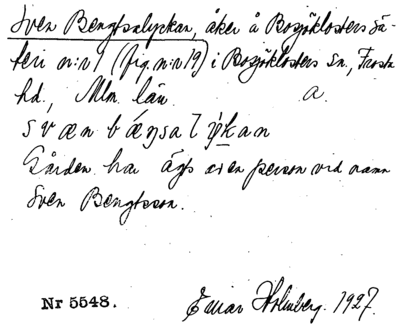 Sven Bengtsalyckan, åker å Bosjöklosters Sä-
teri n:r 1 (frg. n:r 19) i Bosjöklosters sn., Frosta
hd., Mlm. län. a.
svæn bæŋsalýkan
Gården har ägts av en person vid namn
Sven Bengtsson.
Nr 5548. Einar Holmberg. 1927.